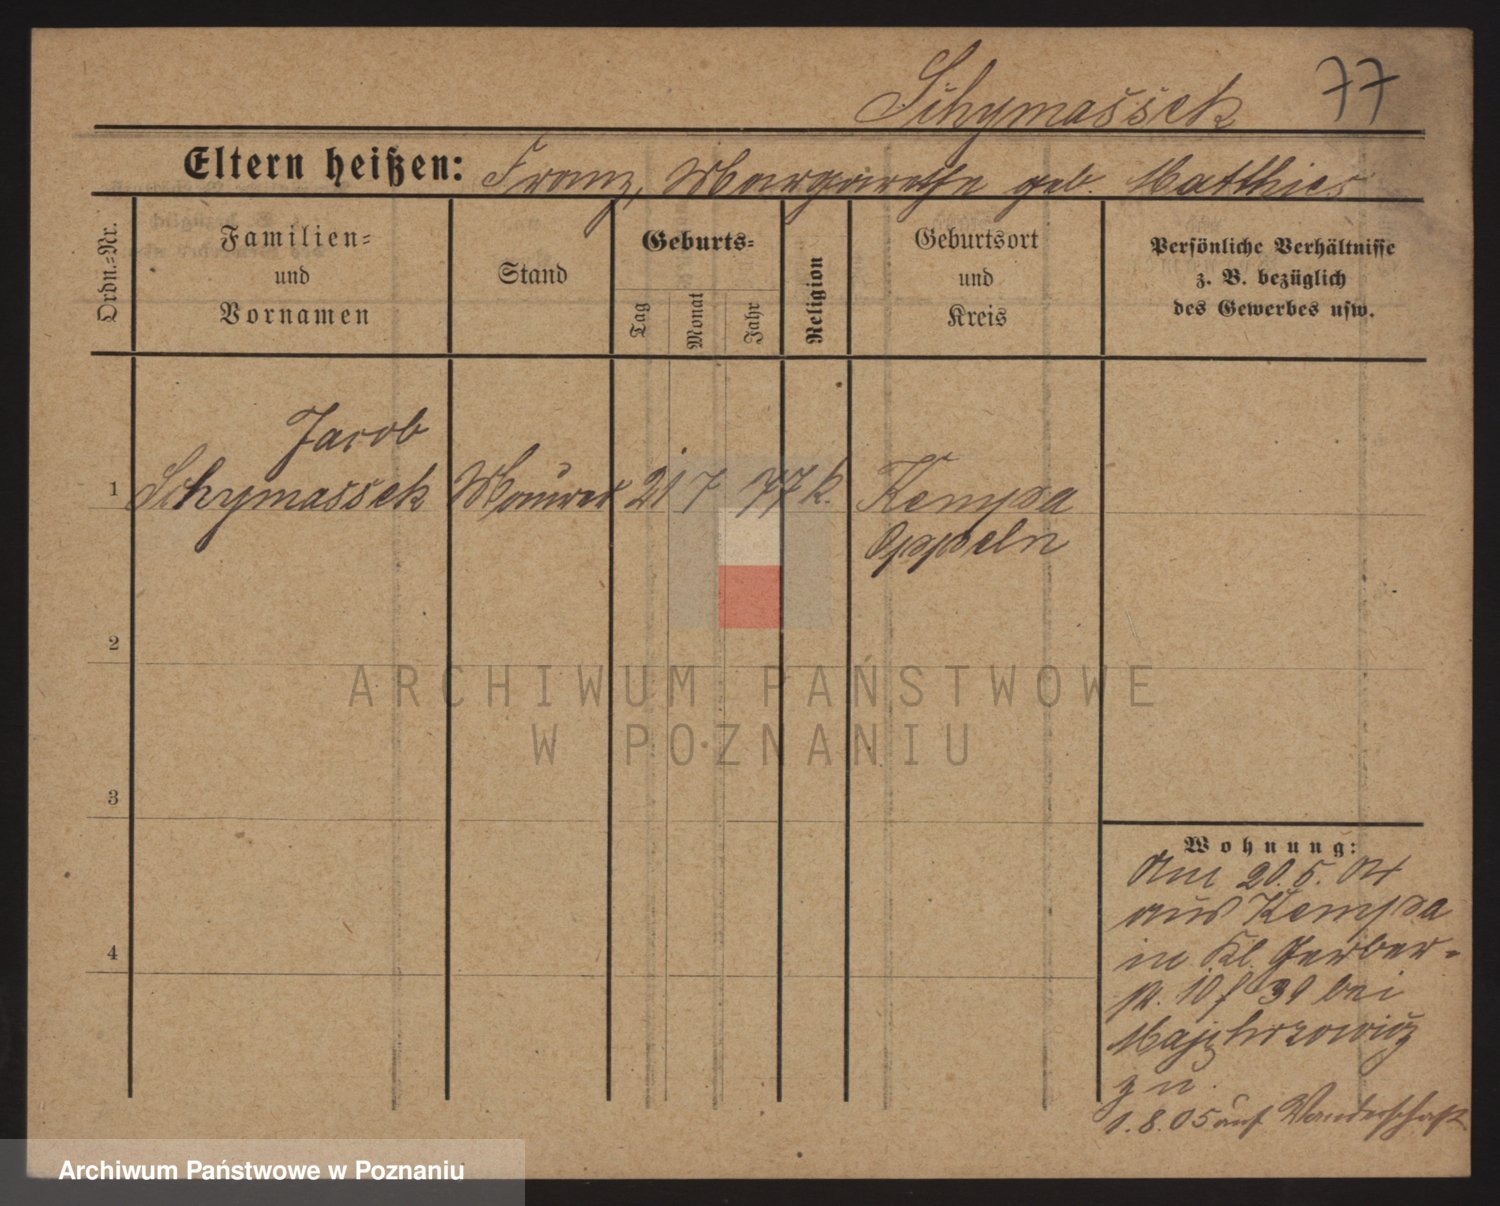 Schymassek 77
Eltern heißen: Franz, Margarethe geb. Matthies
Ordn.-Nr.
Familien-
und
Vornamen
Stand
Geburts-
Tag
Monat
Jahr
Religion
Geburtsort
und
Kreis
Persönliche Verhältnisse
z. B. bezüglich
des Gewerbes usw.
Jacob
1 Schymassek Maurer 21 7 77 k. Kempa
Oppeln
2
3
4
Wohnung:
Am 20.5.04
aus Kempa
in Kl. Gerber-
st. 10 f 39 bei
zu
1.8.05 auf Wanderschaft
ARCHIWUM PAŃSTWOWE
W POZNANIU
Archiwum Państwowe w Poznaniu